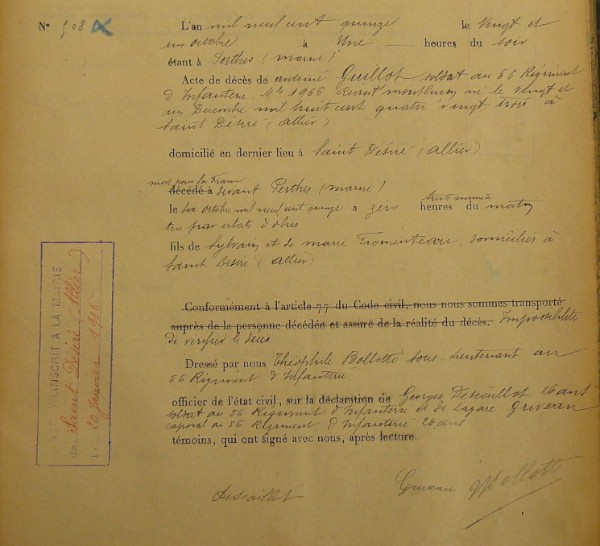 N° 508
L'an mil neuf cent quinze le vingt et
un octobre à Une heures du soir
étant à Perthes (Marne)
Acte de décès de Guillot soldat au 56 Régiment
d'Infanterie, Mle 1966 Recrut Montluçon né le vingt et
un Décembre mil huit cent quatre vingt trois à
Saint Désiré (Allier)
domicilié en dernier lieu à Saint Désiré (Allier)
mort pour la France
décédé à devant Perthes (Marne)
le six octobre mil neuf cent quinze à zéro heures trente minutes du matin
tué par éclats d'obus
fils de Sylvain et de Marie Fromenteau, domiciliés à
Saint Désiré (Allier)
Conformément à l'article 77 du Code civil, nous nous sommes transporté
auprès de la personne décédée et assuré de la réalité du décès. Impossibilité
de vérifier le décès
Dressé par nous Théophile Bollotte sous-lieutenant au
56 Régiment d'Infanterie
officier de l'état civil, sur la déclaration de Georges Descaillot 26 ans
soldat au 56 Régiment d'Infanterie et de Lazare Griveau
caporal au 56 Régiment d'Infanterie 26 ans
témoins, qui ont signé avec nous, après lecture.
Descaillot Griveau Bollotte
TRANSCRIT A LA MAIRIE
de Saint Désiré (Allier)
Le 29 Janvier 1916